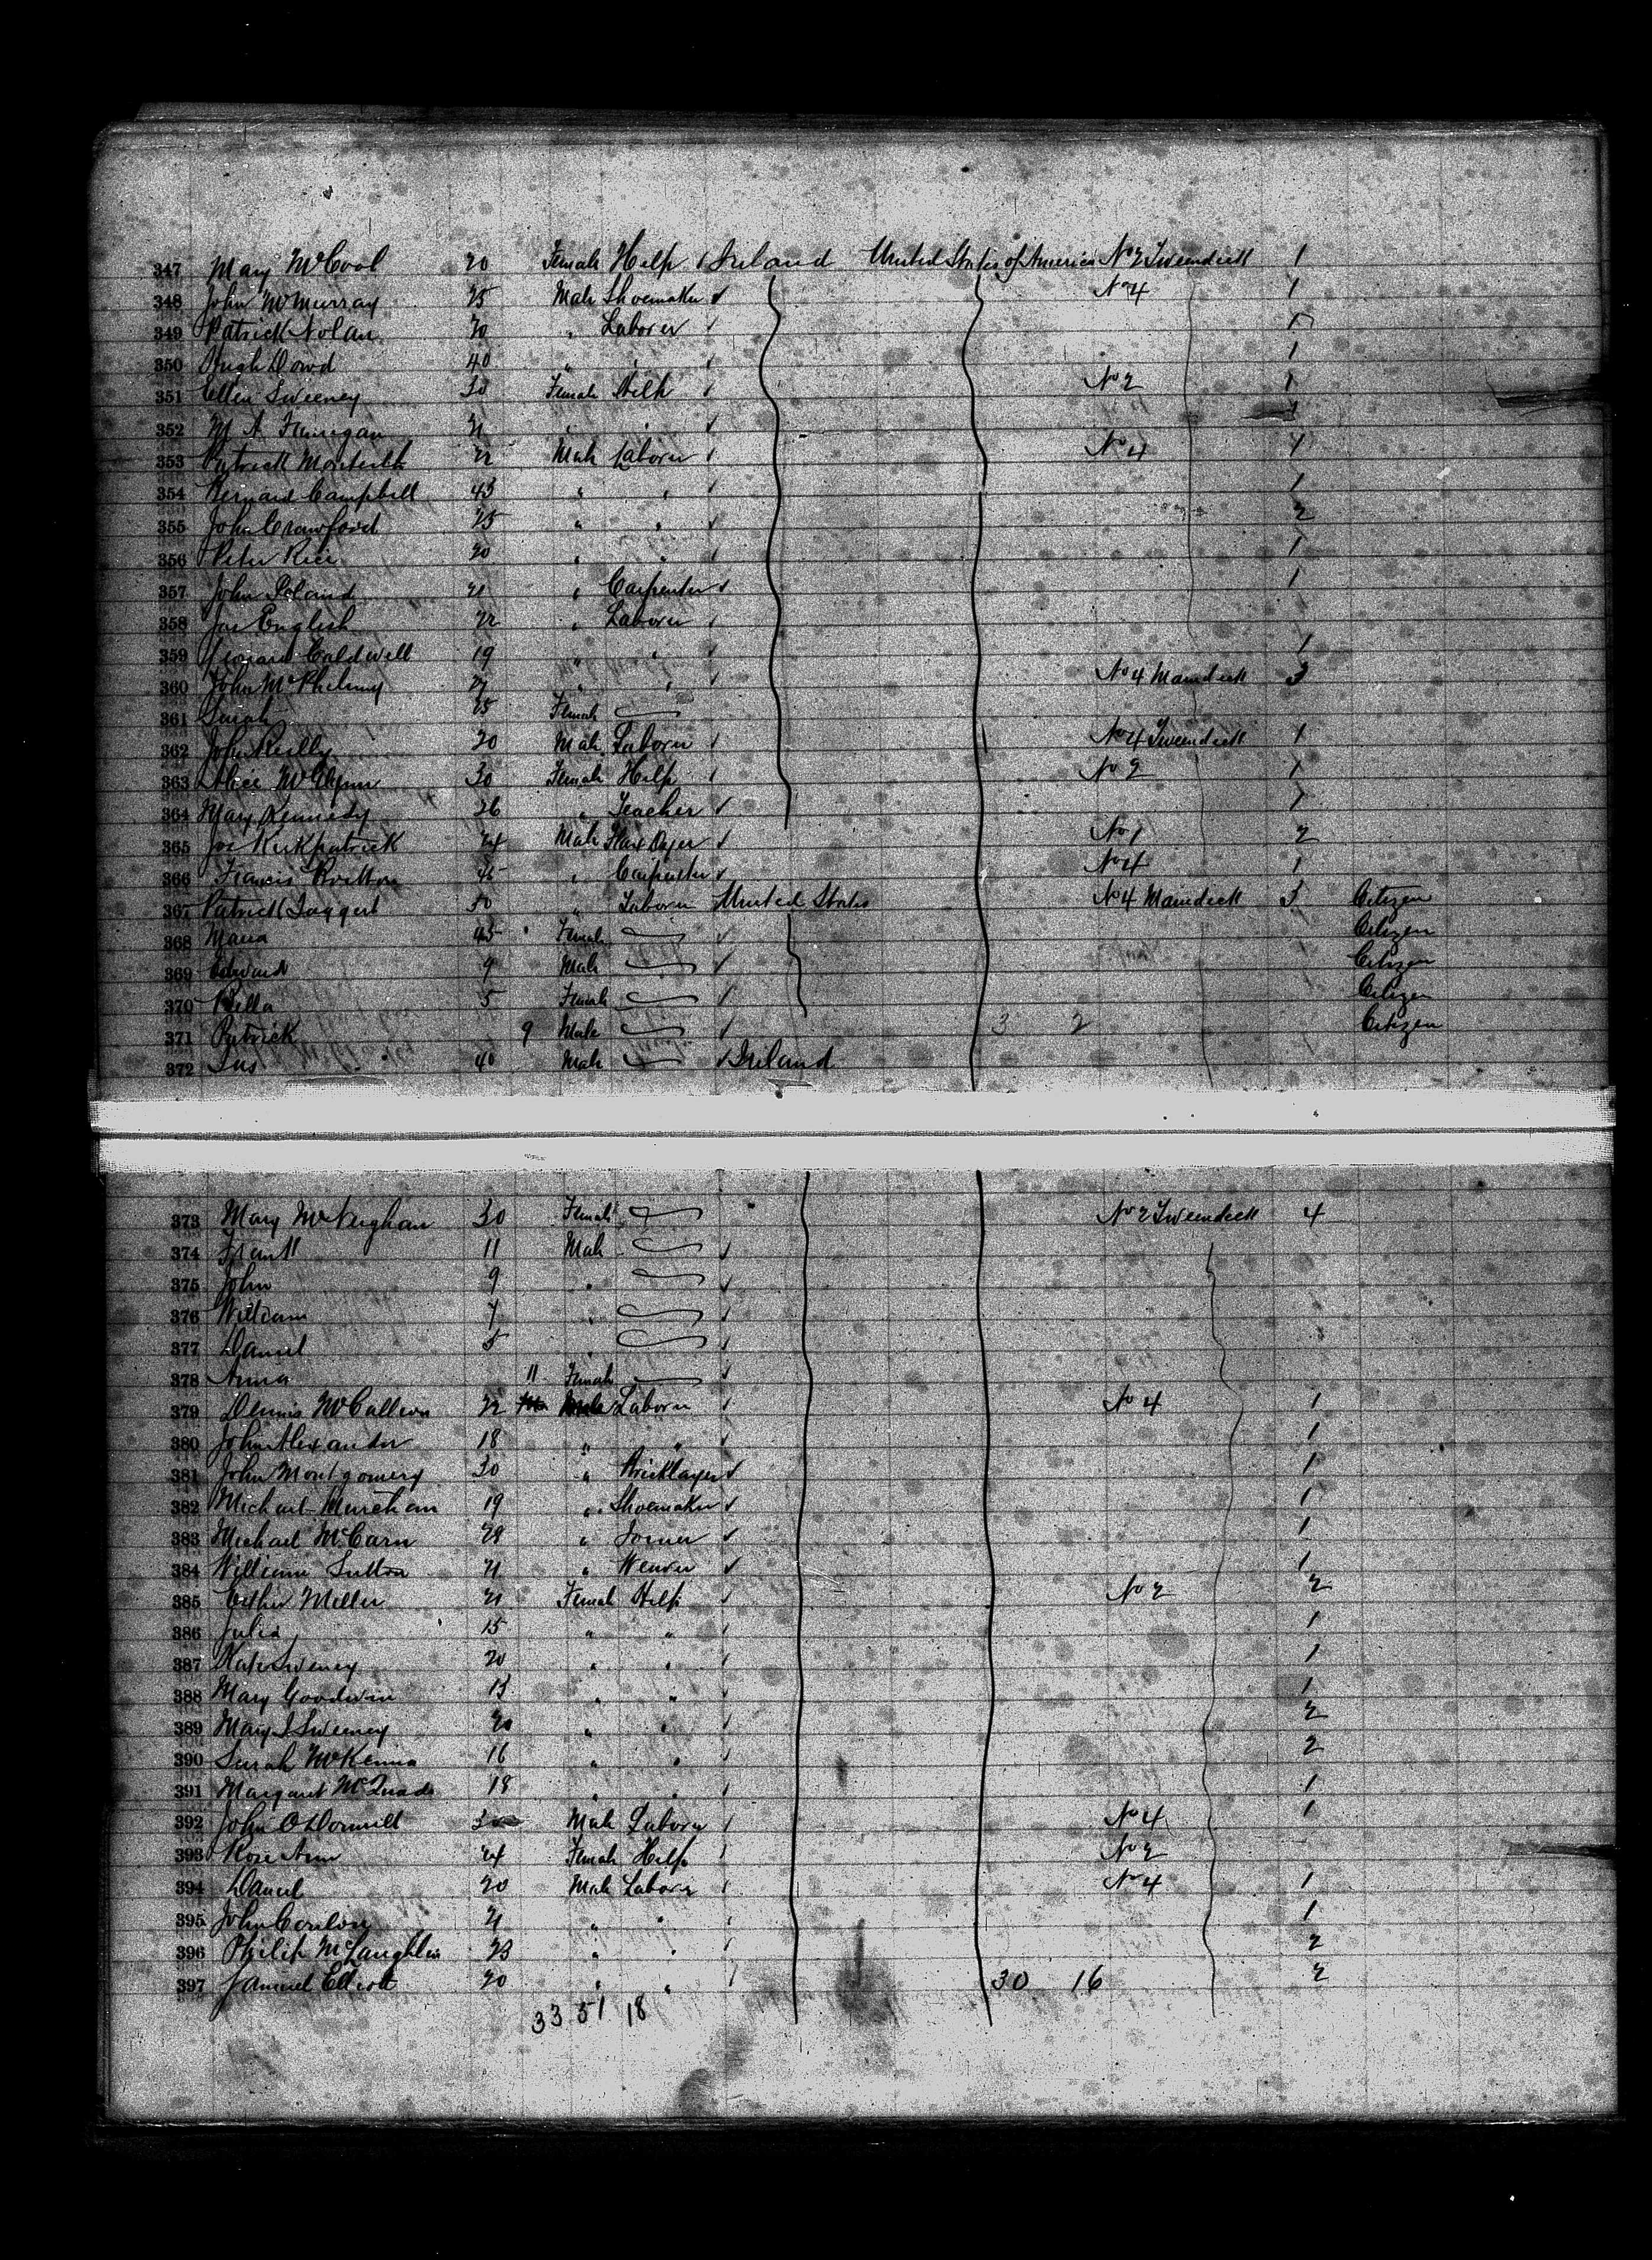 347 Mary McCool 20 Female Help Ireland United States of America No 2 Tweendeck 1
348 John McMurray 25 Male Shoemaker No 4 1
349 Patrick Nolan 20 " Laborer 1
350 Hugh Dowd 40 " " 1
351 Ellen Sweeney 30 Female Help No 2 1
352 M A Finnigan 21 " " 1
353 Patrick Monteith 22 Male Laborer No 4 1
354 Bernard Campbell 43 " " 1
355 John Crawford 25 " " 2
356 Peter Rice 20 " " 1
357 John Poland 21 " Carpenter 1
358 Jas English 22 " Laborer
359 Leonard Caldwell 19 " " 1
360 John McPhelimy 27 " " No 4 Maindeck 3
361 Sarah 25 Female
362 John Reilly 20 Male Laborer No 4 Tweendeck 1
363 Alice McGlynn 30 Female Help No 2 1
364 Mary Kennedy 26 " Teacher 1
365 Jos Kirkpatrick 24 Male No 1 2
366 Francis 45 " Carpenter No 4 1
367 Patrick Taggert 50 " Laborer United States No 4 Maindeck 3 Citizen
368 Maria 43 Female Citizen
369 Edward 9 Male Citizen
370 Bella 5 Female Citizen
371 Patrick 9 Male 3 2 Citizen
372 Jas 40 Male Ireland
373 Mary McNeighan 30 Female No 2 Tweendeck 4
374 Frank 11 Male
375 John 9 "
376 William 7 "
377 Daniel 5 "
378 Anna 11 Female
379 Dennis McCallion 22 Male Laborer No 4 1
380 John Alexander 18 " " 1
381 John Montgomery 30 " Bricklayer 1
382 Michael 19 " Shoemaker 1
383 Michael McCarn 28 " Joiner 1
384 William Sutton 21 " Weaver 1
385 Esther Miller 21 Female Help No 2 2
386 Julia 15 " " 1
387 Kate Sweeney 20 " " 1
388 Mary Goodwin 13 " " 1
389 Mary J Sweeney 20 " " 2
390 Sarah McKenna 16 " " 2
391 Margaret McQuade 18 " " 1
392 John ODonnell Male Laborer No 4 1
393 Rose Ann 24 Female Help No 2
394 Daniel 20 Male Laborer No 4 1
395 John Conlon 21 " " 1
396 Philip McLaughlin 23 " " 2
397 Samuel Elliott 20 " " 30 16 2
33 51 18